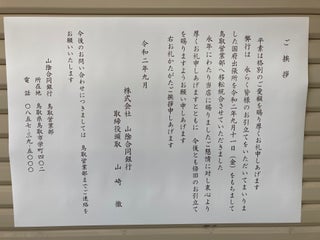 ご挨拶
平素は格別のご愛顧を賜り厚くお礼申しあげます
弊行は 永らく皆様のお引立てをいただいてまいりま
した国府出張所を令和二年九月十一日(金)をもちまして
鳥取営業部へ移転統合させていただきました
永年にわたり当店に賜りましたご懇情に対し衷心より
厚くお礼申しあげますとともに 今後とも倍旧のお引立て
を賜りますようお願い申しあげます
右お礼かたがたご挨拶申しあげます
令和二年九月
株式会社 山陰合同銀行
取締役頭取 山崎 徹
今後のお問い合わせにつきましては 鳥取営業部までご連絡を
お願いいたします
山陰合同銀行 鳥取営業部
所在地 鳥取県鳥取市栄町四〇二
電話 〇八五七-三九-五〇〇〇